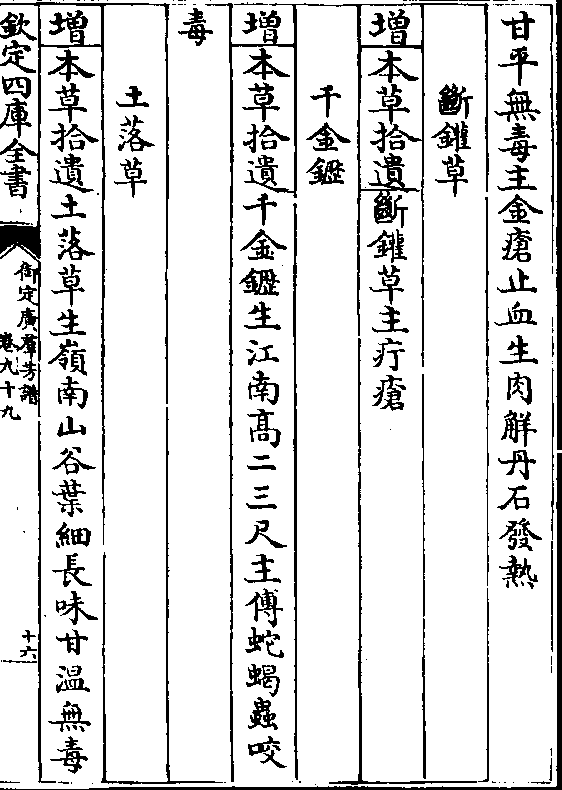 甘平無毒主金瘡止血生肉解丹石發熱
斷鑵草
增本草拾遺斷鑵草主疔瘡
千金鑹
增本草拾遺千金鑹生江南高二三尺主傅蛇蝎蟲咬
毒
土落草
增本草拾遺土落草生嶺南山谷葉細長味甘温無毒
欽定四庫全書
御定廣羣芳譜
卷九十九
十六